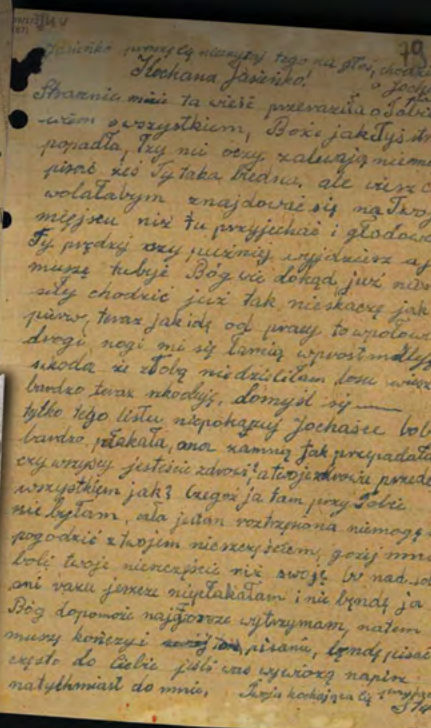 79
Jasieńko proszę cię nieczytaj tego na głos, chodzi
o Jocha
Kochana Jasieńko!
Strasznie mnie ta wieść przeraziła o Tobie
wiem o wszystkiem, Boże jak Tyś
popadła, łzy mi oczy zalewają niemogę
pisać żeś Ty taka biedna, ale wiesz
wolałabym znajdować się na Twoj
miejscu niż tu przyjechać i głodować
Ty prędzej czy puźniej wyjdziesz a ja
muszę tu być Bóg wie dokąd, już
siły chodzić już tak nieskaczę jak
pierw, teraz jak idę od pracy to wpołowie
drogi nogi mi się łamią wprost mdleję
szkoda że z Tobą niedzieliłam losu wiesz
bardzo teraz żałuję, domyśl się
tylko tego listu niepokazuj Jochasce bo
bardzo płakała, ona zamną tak przepadała
czy wszyscy jesteście zdrowi? a twoje zdrowie przede
wszystkiem jak? Czegoż ja tam przy Tobie
nie byłam, cała jestem roztrzęsiona niemogę
pogodzić z twojem nieszczęściem, gożej mnie
boli twoje nieszczęście niż swoje
ani razu jeszcze niepłakałam i nie będę ja
Bóg dopomoże najgorsze wytrzymam, natem
muszę kończyć pisanie, będę pisać
często do Ciebie jeśli was wywiozą napisz
natychmiast do mnie, Twoja kochająca Cię